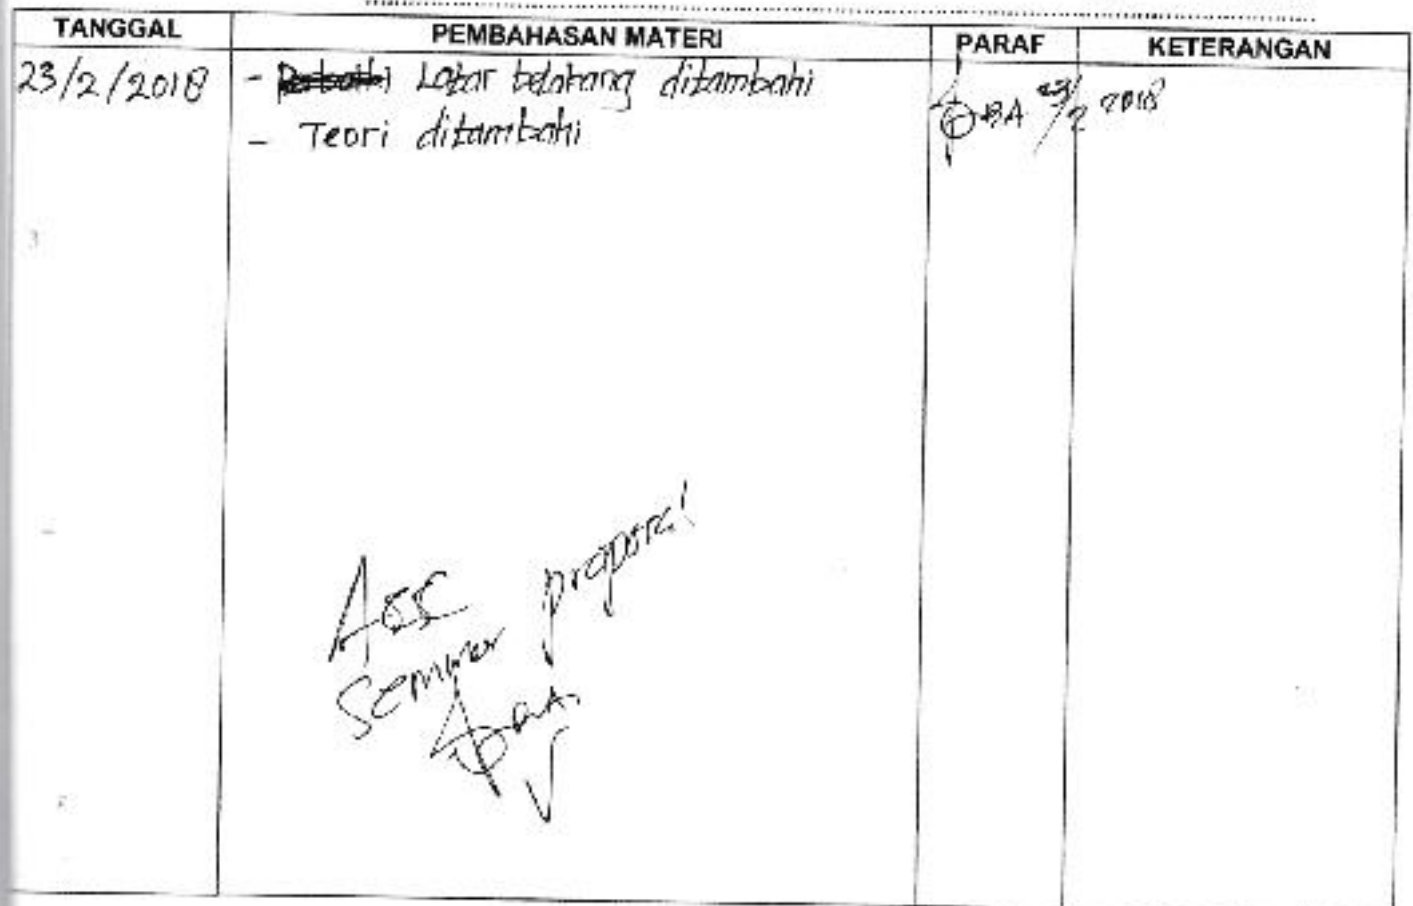 TANGGAL PEMBAHASAN MATERI PARAF KETERANGAN
23/2/2018 - Latar belakang ditambahi BA 23/2 2018
- Teori ditambahi
Acc
seminar proposal
BA